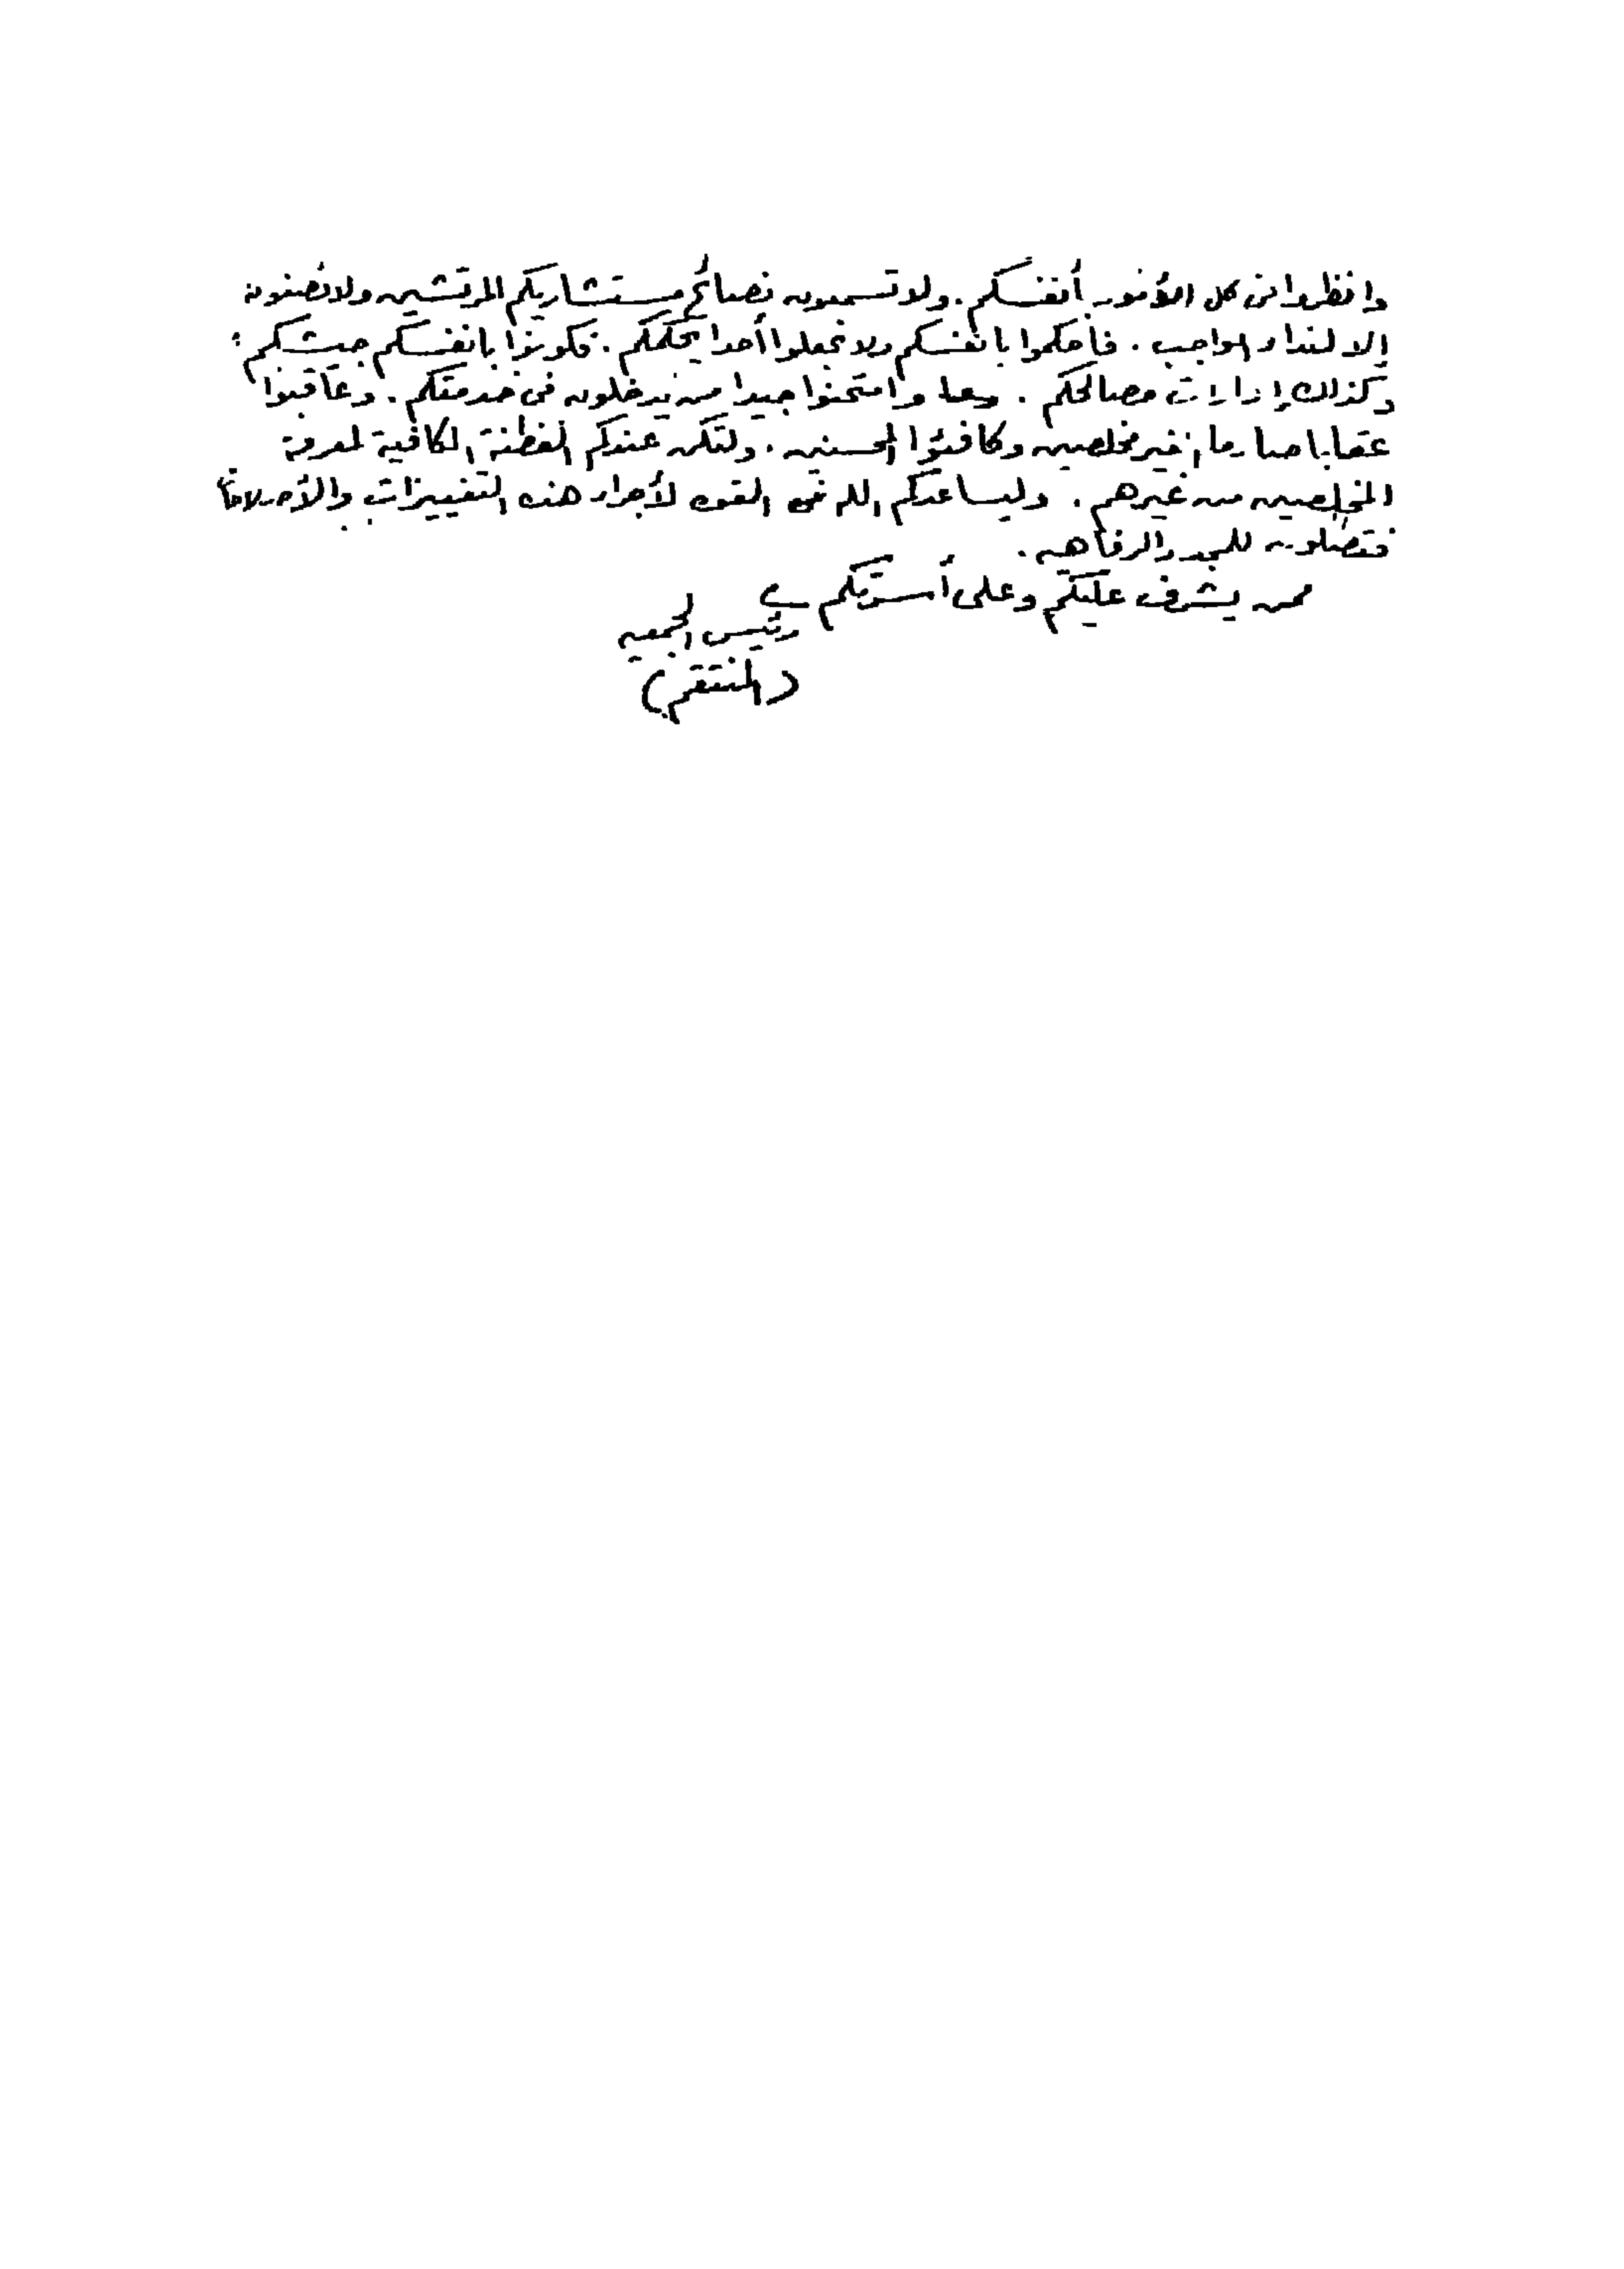 وانظروا فى كل الأمور بأنفسكم. ولا تسمعون نصائح مستشاريكم المرتشين ولا تصغون
إلا لنداء الواجب. فاحكموا بأنفسكم ولا تجعلوا أحدا يحكمكم. فكونوا بأنفسكم جيشكم؛
وكذلك إدارات مصالحكم. وامتحنوا جيدا من يدخلون فى خدمتكم. وعاقبوا
عقابا صارما غير مخلصين وكافئوا المحسنين. ولتكن عندكم الفطنة الكافية لمعرفة
المخلصين من غيرهم. وليساعدكم الله القوه لأجراء هذه التغييرات والأصلاحات
فتصلون للمجد والرفاهيه.
ممن يشرف عليكم وعلى أسرتكم
رئيس الجمعيه
(المنتقم)